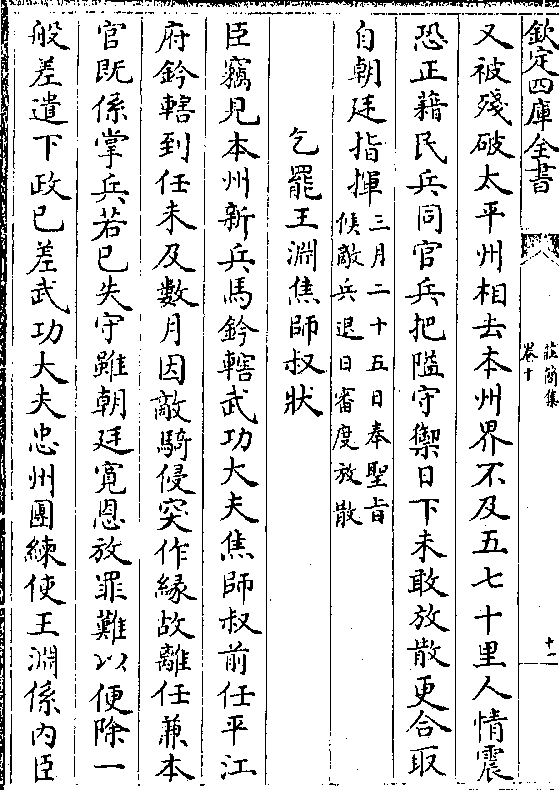 欽定四庫全書
莊簡集
卷十
十二
又被殘破太平州相去本州界不及五七十里人情震
恐正藉民兵同官兵把隘守禦日下未敢放散更合取
自朝廷指揮
三月二十五日奉聖旨
候敵兵退日審度放散
乞罷王淵焦師叔狀
臣竊見本州新兵馬鈐轄武功大夫焦師叔前任平江
府鈐轄到任未及數月因敵騎侵突作緣故離任兼本
官既係掌兵若已失守雖朝廷寛恩放罪難以便除一
般差遣下政已差武功大夫忠州團練使王淵係内臣